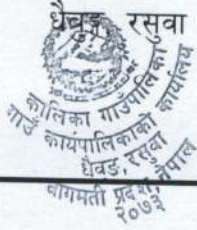 धैबुङ्ग, रसुवा
कालिका गाउँपालिका
गाउँ कार्यपालिकाको कार्यालय
धैवङ, रसुवा
बागमती प्रदेश, नेपाल
२०७३